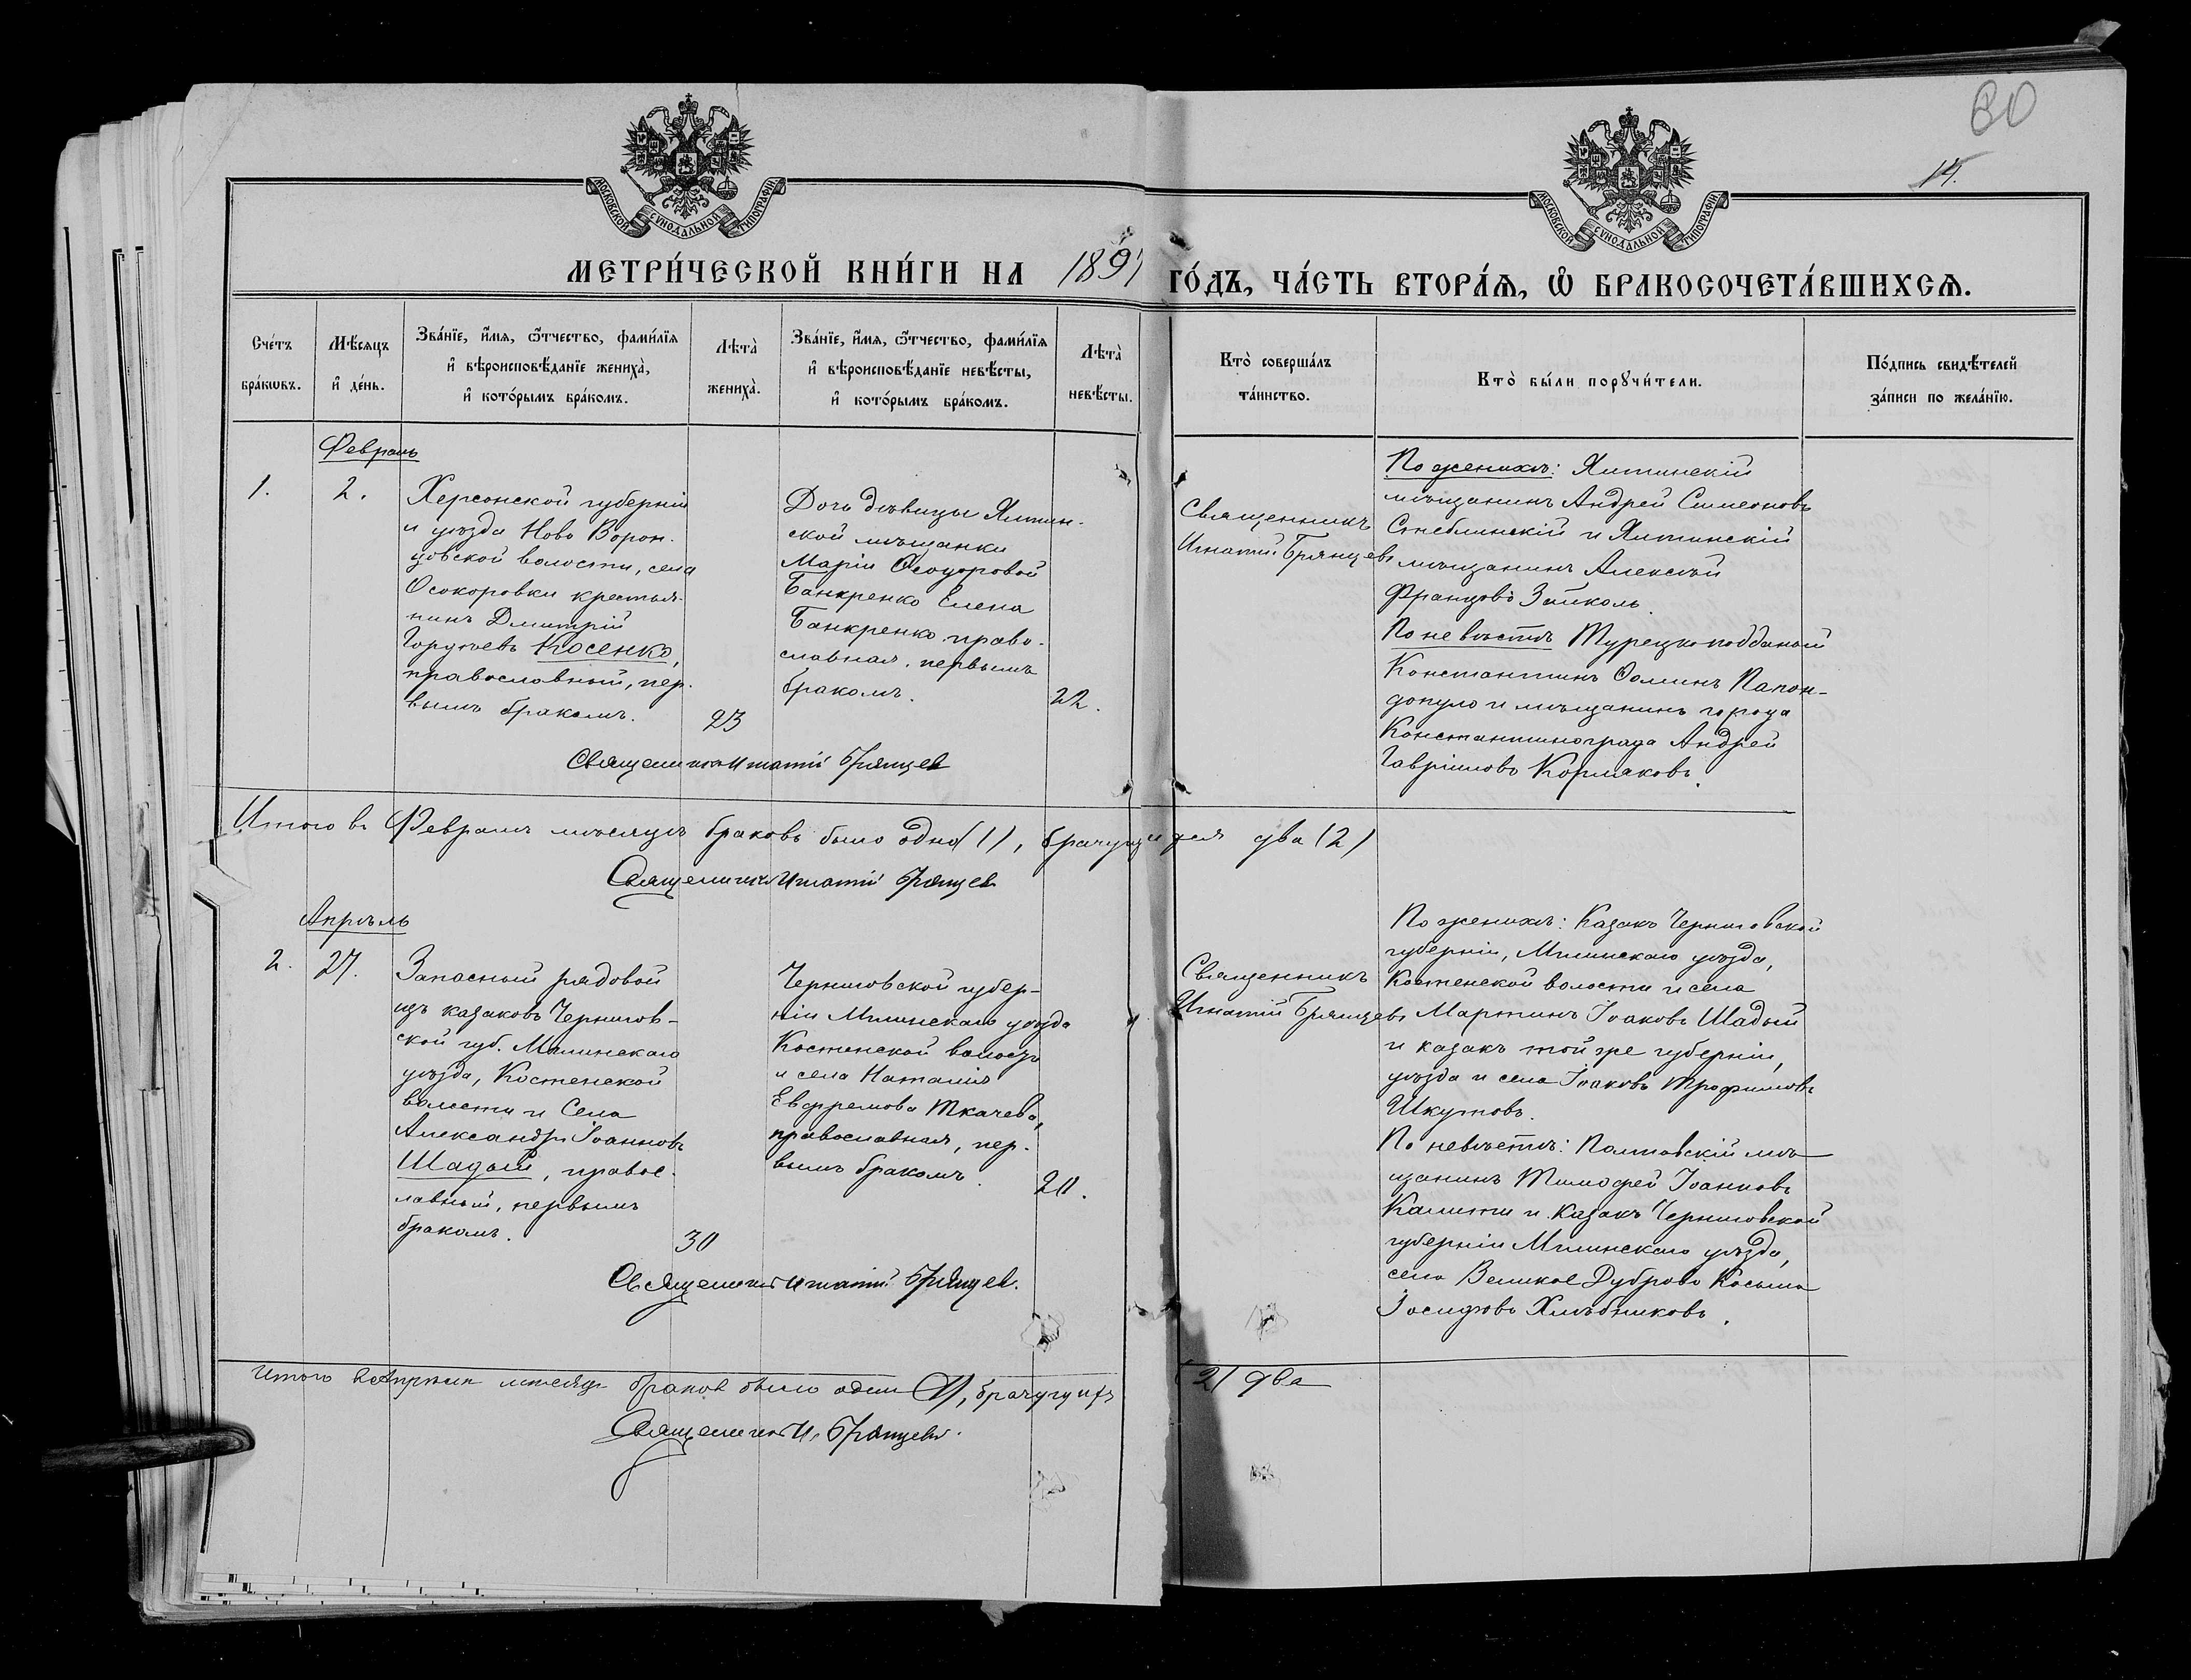 80
14.
МОСКОВСКОЙ СѴНОДАЛЬНОЙ ТИПОГРАФІИ.
МОСКОВСКОЙ СѴНОДАЛЬНОЙ ТИПОГРАФІИ.
МЕТРИ́ЧЕСКОЙ КНИ́ГИ НА 1897 ГО́ДЪ, ЧА́СТЬ ВТОРА́Ѧ, Ѿ БРАКОСОЧЕТА́ВШИХСѦ.
Сче́тъ
бра́кѡвъ.
Мѣ́сѧцъ
и҆ де́нь.
Зва́нїе, и҆́мѧ, ѻ҆́тчество, фами́лїѧ
и҆ вѣроисповѣ́данїе жениха̀,
и҆ кото́рымъ бра́комъ.
Лѣта̀
жениха̀.
Зва́нїе, и҆́мѧ, ѻ҆́тчество, фами́лїѧ
и҆ вѣроисповѣ́данїе невѣ́сты,
и҆ кото́рымъ бра́комъ.
Лѣта̀
невѣ́сты.
Кто̀ соверша́лъ
та́инство.
Кто̀ бы́ли порꙋчи́тели.
По́дпись свидѣ́телей
за́писи по жела́нїю.
Февраль
1.
2.
Херсонской губерніи
и уѣзда Ново Ворон-
цовской волости, села
Осокоровки крестья-
нинъ Дмитрій
Косенко,
православный, пер-
вымъ бракомъ.
23
Дочь дѣвицы Ялтин-
ской мѣщанки
Маріи Ѳеодоровой
Банкренко Елена
Банкренко право-
славная, первымъ
бракомъ.
22.
Священникъ
Игнатій Брянцевъ
По женихѣ: Ялтинскій
мѣщанинъ Андрей Симеоновъ
Стеблинскій и Ялтинскій
мѣщанинъ Алексѣй
Францовъ Зайколь.
По невѣстѣ Турецкоподданый
Константинъ Ѳоминъ Папон-
допуло и мѣщанинъ города
Константинограда Андрей
Гавріиловъ Кормаковъ.
Священникъ Игнатій Брянцевъ
Итого въ Февралѣ мѣсяцѣ браковъ было одно (1), брачущихся два (2)
Священникъ Игнатій Брянцевъ
Апрѣль
2.
27.
Запасный рядовой
изъ казаковъ Чернигов-
ской губ. Мглинскаго
уѣзда, Костенской
волости и Села
Александръ Іоанновъ
Шадый, правос-
лавный, первымъ
бракомъ.
30
Черниговской губер-
ніи Мглинскаго уѣзда
Костенской волости
и села Наталія
Евфремова Ткачева,
православная, пер-
вымъ бракомъ.
20.
Священникъ
Игнатій Брянцевъ
По женихѣ: Казакъ Черниговской
губерніи, Мглинскаго уѣзда,
Костенской волости и села
Мартинъ Іоаковъ Шадый
и казакъ той же губерніи,
уѣзда и села Іоаковъ Трофимовъ
Шкутовъ.
По невѣстѣ: Полтовскій мѣ-
щанинъ Тимофей Іоанновъ
и казакъ Черниговской
губерніи Мглинскаго уѣзда,
села Великое Дуброво Косьма
Іосифовъ Хлѣбниковъ.
Священникъ Игнатій Брянцевъ.
Итого въ Апрѣлѣ мѣсяцѣ браков было один (1), брачущихъ (2) два
Священникъ И. Брянцевъ.